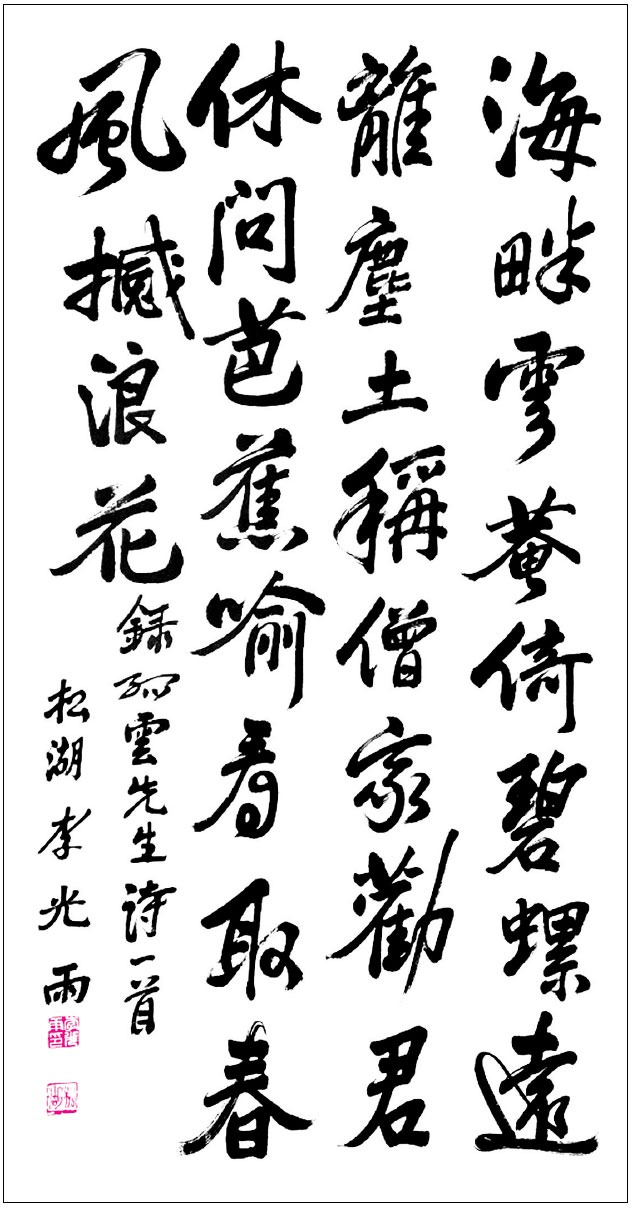 海畔雲菴倚碧螺遠
離塵土稱僧家勸君
休問芭蕉喻看取春
風撼浪花
錄孤雲先生詩一首
松湖李光雨